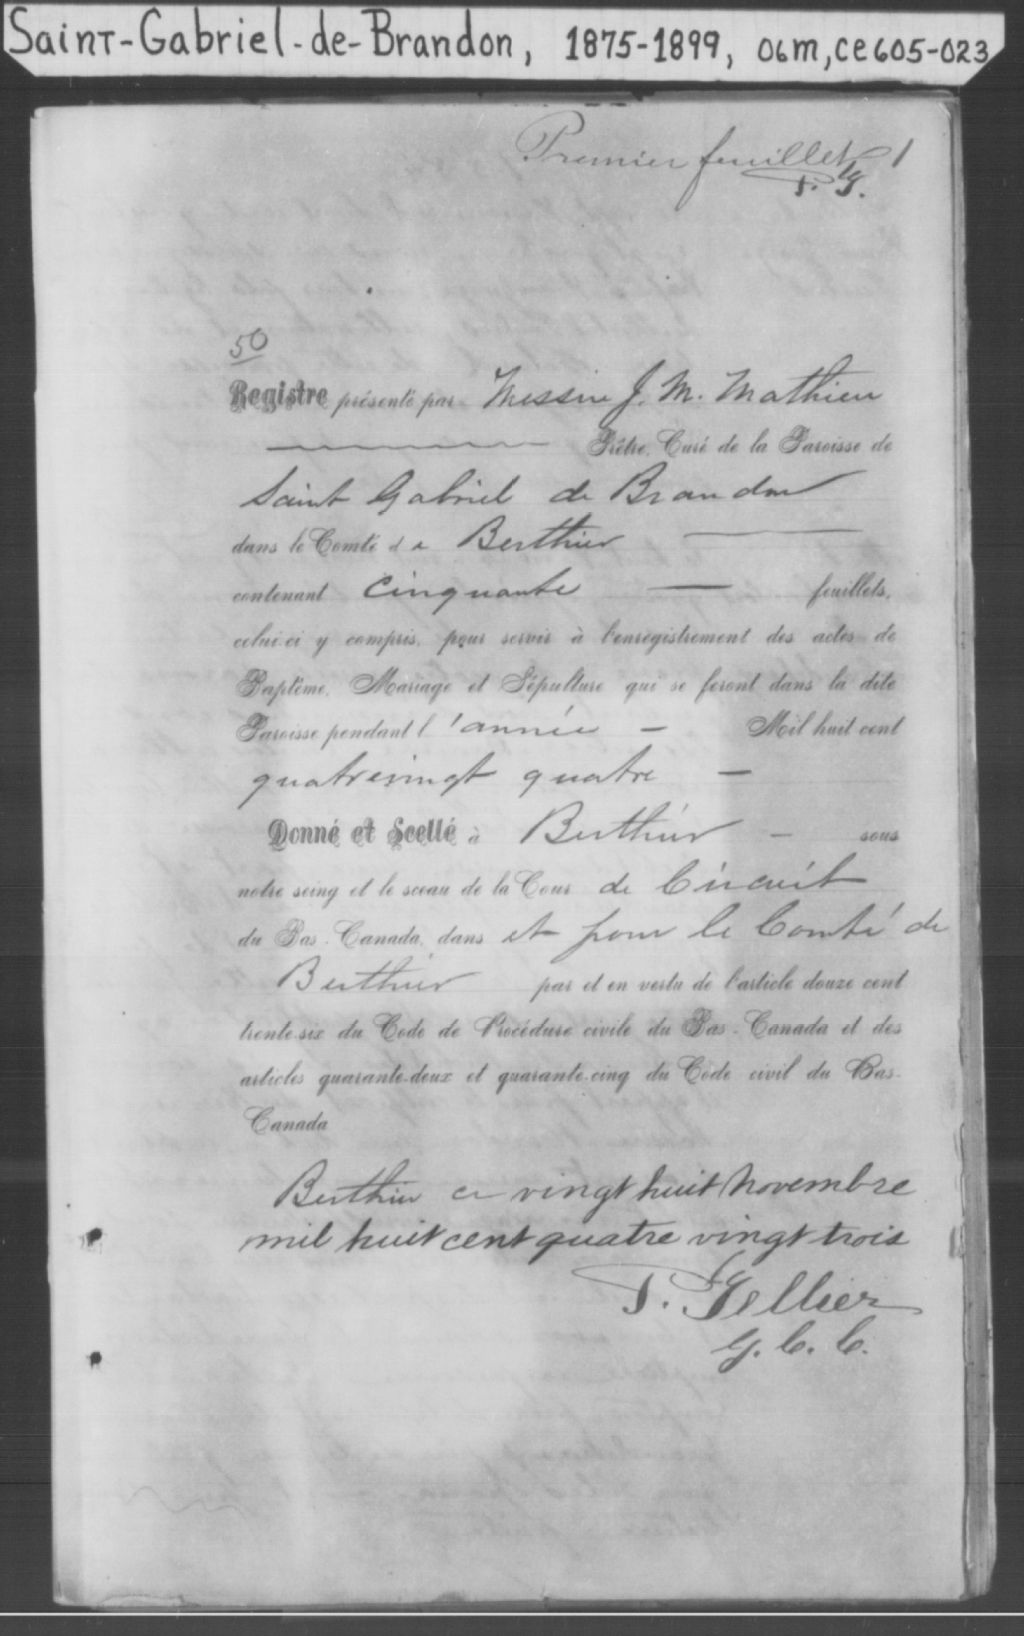 Saint-Gabriel-de-Brandon, 1875-1899, 06m,ce605-023
Premier feuillet 1
P. G.
50
Registre présenté par Messire J. M. Mathieu
Prêtre, Curé de la Paroisse de
Saint Gabriel de Brandon
dans le Comté de Berthier
contenant cinquante feuillets,
celui-ci y compris, pour servir à l'enregistrement des actes de
Baptême, Mariage et Sépulture qui se feront dans la dite
Paroisse pendant l'année Mil huit cent
quatrevingt quatre
Donné et Scellé à Berthier sous
notre seing et le sceau de la Cour de Circuit
du Bas-Canada, dans et pour le Comté de
Berthier par et en vertu de l'article douze cent
trente-six du Code de Procédure civile du Bas-Canada et des
articles quarante-deux et quarante-cinq du Code civil du Bas-
Canada
Berthier ce vingt huit Novembre
mil huit cent quatre vingt trois
P. Tellier
G. C. C.